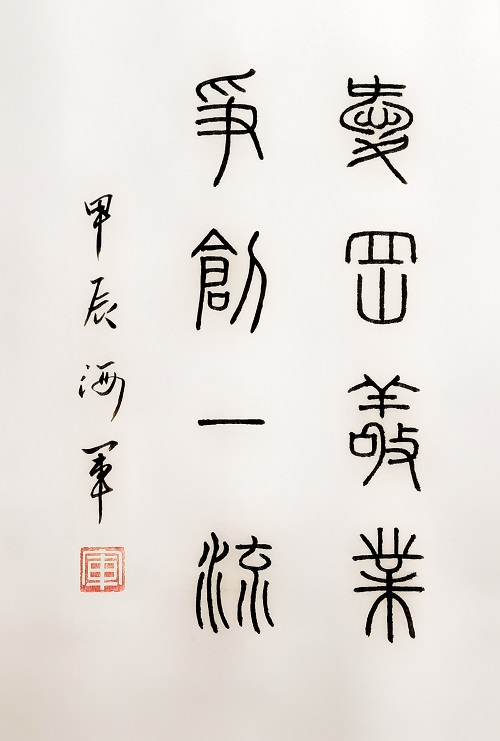 愛岡敬業
爭創一流
甲辰海軍
軍